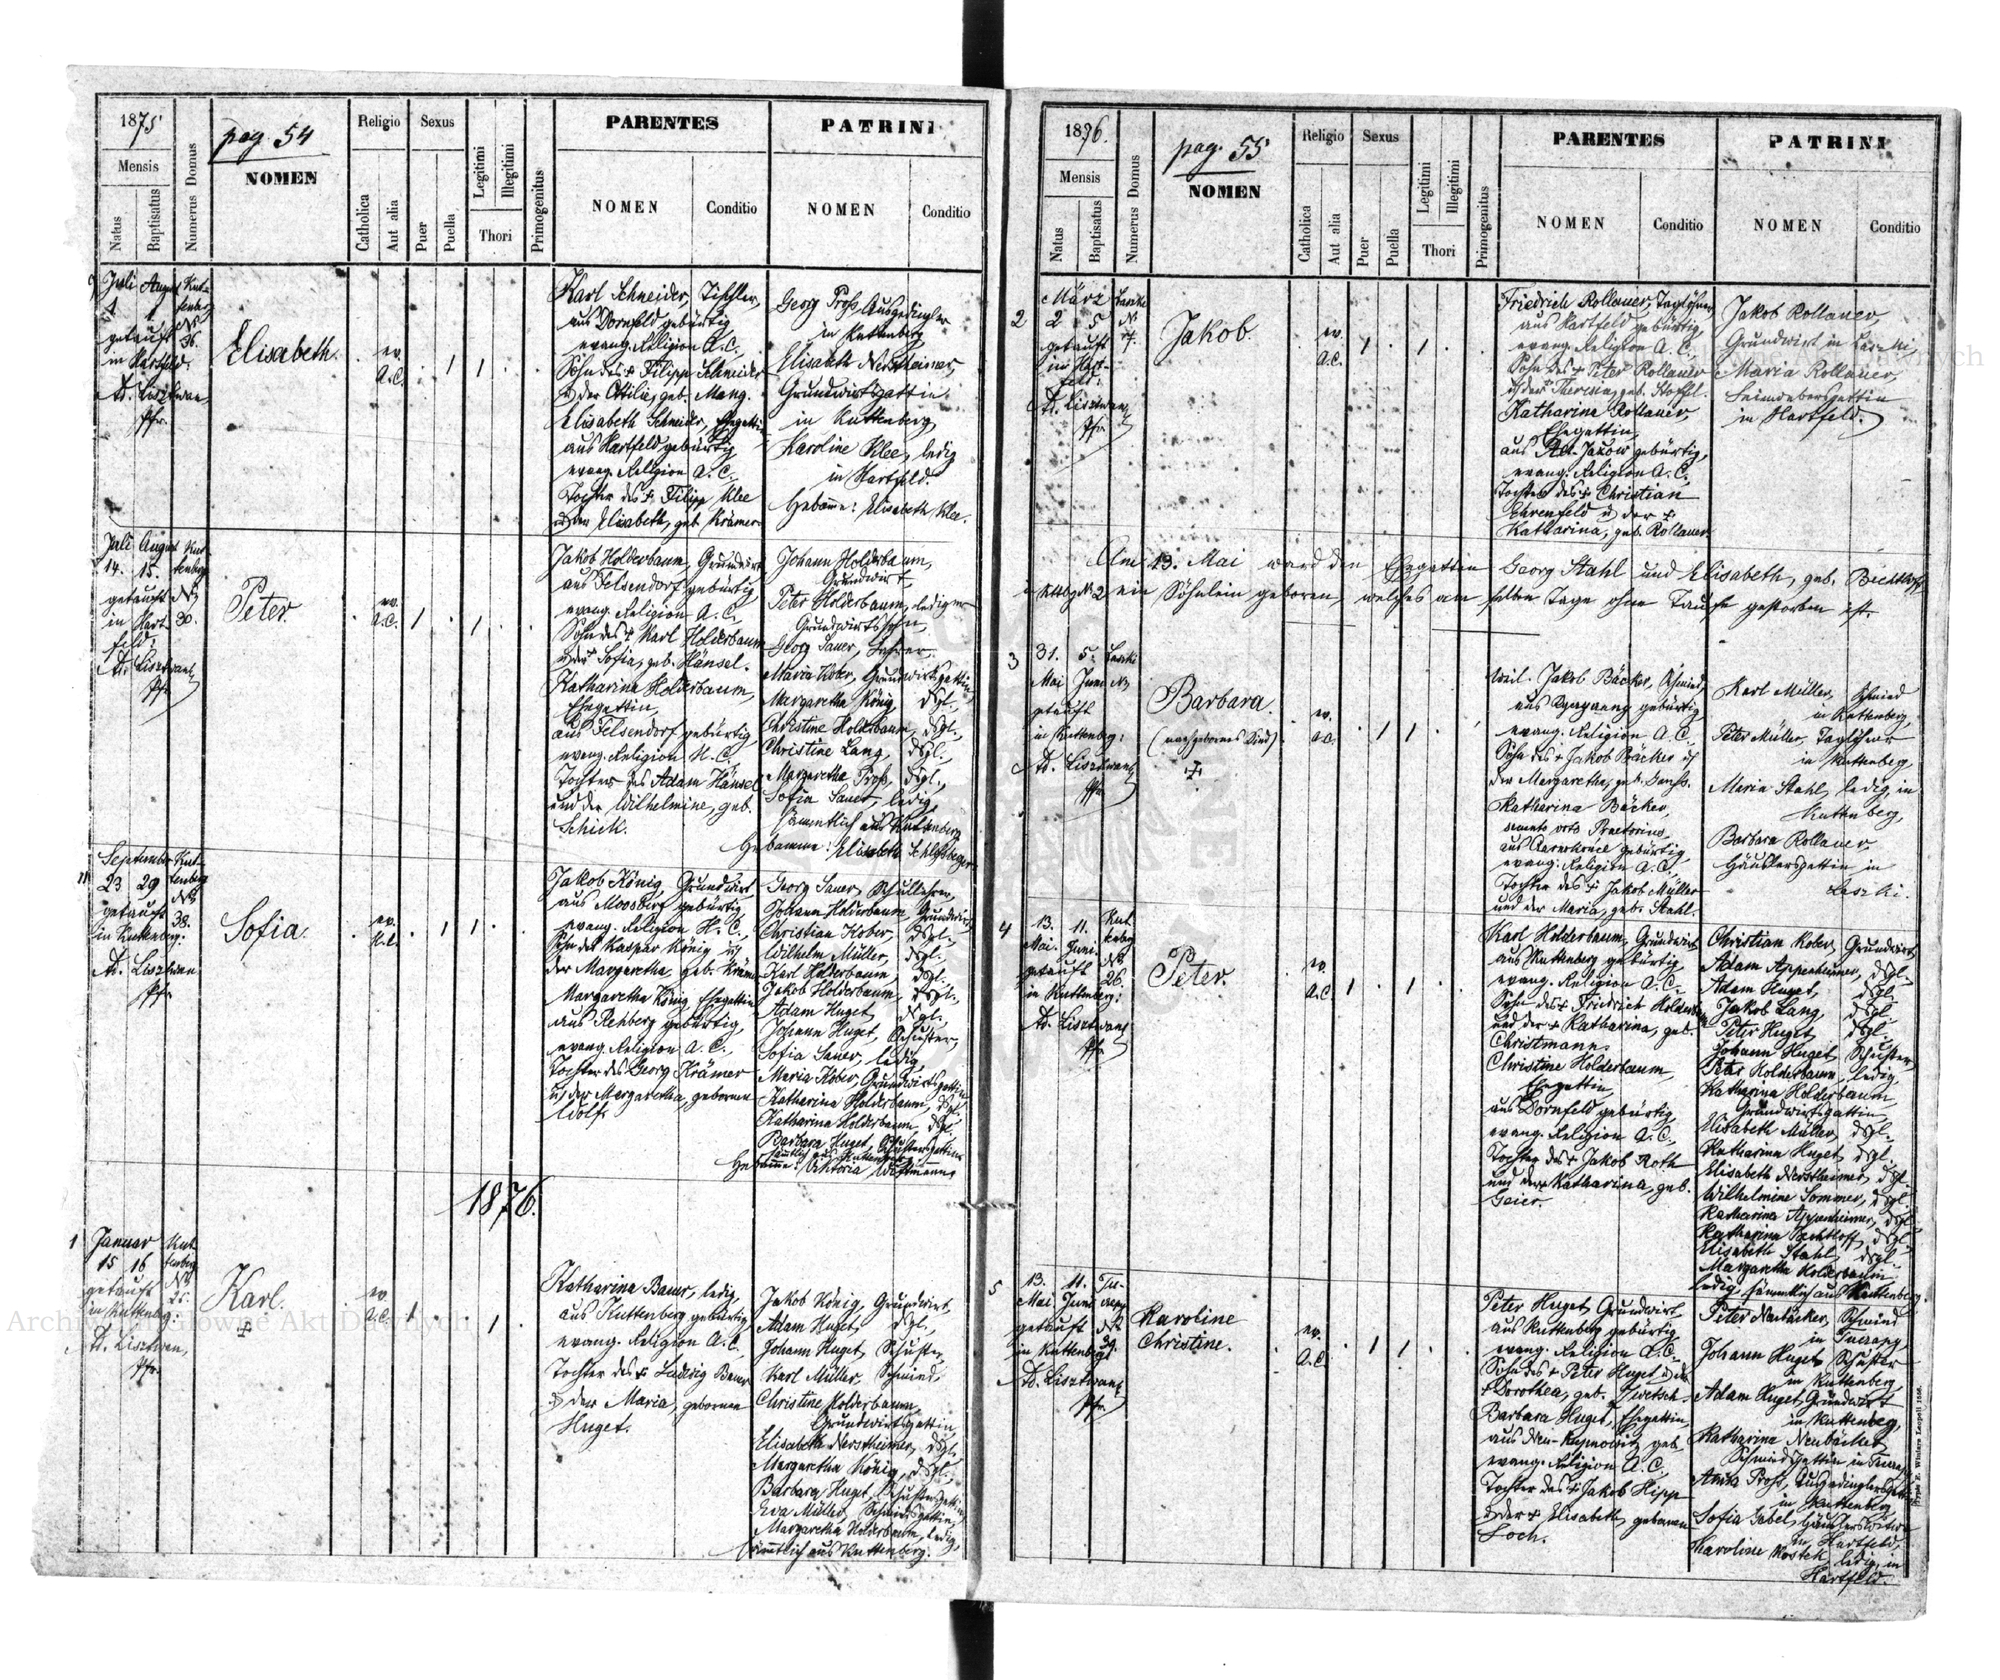 1875
pag. 54
NOMEN
Mensis
Natus
Baptisatus
Numerus Domus
Religio
Catholica
Aut alia
Sexus
Puer
Puella
Legitimi
Illegitimi
Thori
Primogenitus
PARENTES
NOMEN
Conditio
PATRINI
NOMEN
Conditio
Juli August
1 1
getauft
in Hartfeld.
Ad. Lisztwan
Pfr.
36.
Elisabeth.
ev.
A.C.
1 1
Karl Schneider, Tischler,
aus Dornfeld gebürtig
evang. Religion A. C.,
Sohn des + Filipp Schneider
u der Ottilie, geb. Mang.
Elisabeth Schneider, Ehegattin
aus Hartfeld gebürtig
evang. Religion A. C.
Tochter des + Filipp Klee
u der Elisabeth, geb. Krämer
Georg Proß, Ausgedingler
in Kuttenberg
Elisabeth Nerstheimer,
Grundwirtsgattin
in Kuttenberg
Karoline Klee, ledig
in Hartfeld.
Hebamme: Elisabeth Klee.
Juli August Kut-
14. 15. tenberg
getauft No
in Hart- 30.
feld;
Ad. Lisztwan
Pfr.
Peter.
ev.
A.C.
1 1
Jakob Holderbaum, Grundwirt
aus Felsendorf gebürtig
evang. Religion A. C.,
Sohn des + Karl Holderbaum
u der Sofia, geb. Hänsel.
Katharina Holderbaum,
Ehegattin,
aus Felsendorf gebürtig
evang. Religion H. C.,
Tochter des Adam Hänsel
und der Wilhelmine, geb.
Schick.
Johann Holderbaum,
Grundwirt
Peter Holderbaum, lediger
Grundwirtssohn,
Georg Sauer, Lehrer.
Maria Kober, Grundwirtsgattin,
Margaretha König, dsgl.,
Christine Holderbaum, dsgl.,
Christine Lang, dsgl.,
Margaretha Proß, dsgl.,
Sofia Sauer, ledig,
sämmtlich aus Kuttenberg
Hebamme: Elisabeth
September Kut-
23 29 tenberg
getauft No
in Kuttenberg. 38.
Ad. Lisztwan
Pfr.
Sofia.
ev.
H.C.
1 1
Jakob König, Grundwirt
aus Moosberg gebürtig
evang. Religion H. C.,
Sohn des Kaspar König u
der Margaretha geb. Krämer
Margaretha König Ehegattin
aus Rehberg gebürtig,
evang. Religion A. C.,
Tochter des Georg Krämer
u der Margaretha, geborenen
Wolf.
Georg Sauer, Schullehrer,
Johann Holderbaum, Grundwirt,
Christian Kober, dsgl.,
Wilhelm Müller, dsgl.
Karl Holderbaum, dsgl.
Jakob Holderbaum, dsgl.,
Adam Huget, dsgl.
Johann Huget, Schuster,
Sofia Sauer, ledig,
Maria Kober, Grundwirtsgattin
Katharina Holderbaum, dsgl.
Katharina Holderbaum, dsgl.
Barbara Huget, Schustersgattin
sämtlich aus Kuttenberg
Hebamme: Viktoria
1876.
1
Januar Kut-
15 16 tenberg
getauft No
in Kuttenbg. 25.
Ad. Lisztwan,
Pfr.
Karl.
+
ev.
A.C.
1 1
Katharina Bauer, ledig,
aus Kuttenberg gebürtig,
evang. Religion A. C.
Tochter des + Ludwig Bauer
u der Maria, geborenen
Huget.
Jakob König, Grundwirt,
Adam Huget, dsgl.,
Johann Huget, Schuster,
Karl Müller, Schmied,
Christine Holderbaum,
Grundwirtsgattin,
Elisabeth Nerstheimer, dsgl.
Margaretha König, dsgl.,
Barbara Huget, Schustersgattin,
Eva Müller, Schmiedsgattin,
Margaretha Holderbaum, ledig,
sämtlich aus Kuttenberg.
1876.
pag. 55
NOMEN
Mensis
Natus
Baptisatus
Numerus Domus
Religio
Catholica
Aut alia
Sexus
Puer
Puella
Legitimi
Illegitimi
Thori
Primogenitus
PARENTES
NOMEN
Conditio
PATRINI
NOMEN
Conditio
2
März
2 5
getauft
in Hart-
feld:
Ad. Lisztwan
Pfr.
Jakob.
ev.
A.C.
1 1
Friedrich Rollauer, Taglöhner,
aus Hartfeld gebürtig
evang. Religion A. C.,
Sohn des + Peter Rollauer
u der Theresia, geb.
Katharina Rollauer,
Ehegattin,
aus Alt-Jazow gebürtig,
evang. Religion A. C.
Tochter des + Christian
Ehrenfeld u der +
Katharina, geb. Rollauer.
Jakob Rollauer,
Grundwirt in
Maria Rollauer,
in Hartfeld.
Am 13. Mai ward den Ehegatten Georg Stahl und Elisabeth, geb. Bechtloff
in Kttbg No 2 ein Söhnlein geboren, welches am selben Tage ohne Taufe gestorben ist.
3
31. 5.
Mai Juni No
getauft
in Kuttenberg:
Ad. Lisztwan
Pfr.
Barbara.
(nachgebornes Kind)
+
ev.
A.C.
1 1
weil. Jakob Bäcker, Schmied,
gebürtig
evang. Religion A. C.
Sohn des + Jakob Bäcker u
der Margaretha, geb.
Katharina Bäcker,
secundo voto Praetorius,
gebürtig,
evang. Religion A. C.,
Tochter des + Jakob Müller
und der Maria, geb. Stahl.
Karl Müller, Schmied
in Kuttenberg
Peter Müller, Taglöhner
in Kuttenberg
Maria Stahl, ledig, in
Kuttenberg,
Barbara Rollauer,
Häuslersgattin in
4
13. 11. Kut-
Mai Juni tenberg
getauft No
in Kuttenberg: 26.
Ad. Lisztwan
Pfr.
Peter.
ev.
A.C.
1 1
Karl Holderbaum, Grundwirt
aus Kuttenberg gebürtig
evang. Religion A. C.
Sohn des + Friedrich Holderbaum
und der + Katharina, geb.
Christmann.
Christine Holderbaum,
Ehegattin,
aus Dornfeld gebürtig,
evang. Religion A. C.
Tochter des + Jakob Roth
und der + Katharina, geb.
Geier.
Christian Kober, Grundwirt,
Adam Appenheimer, dsgl.
Adam Huget, dsgl.
Jakob Lang, dsgl.
Peter Huget, dsgl.
Johann Huget, Schuster,
Peter Holderbaum, ledig
Katharina Holderbaum,
Grundwirtsgattin,
Elisabeth Müller, dsgl.,
Katharina Huget, dsgl.
Elisabeth Nerstheimer, dsgl.
Wilhelmine Sommer, dsgl.
Katharina Appenheimer, dsgl.
Katharina Bechtloff, dsgl.
Elisabeth Stahl, dsgl.
Margaretha Holderbaum
ledig sämmtlich aus Kuttenberg.
5
13. 11.
Mai Juni
getauft No
in Kuttenberg 29.
Ad. Lisztwan
Pfr.
Karoline
Christine.
ev.
A.C.
1 1
Peter Huget, Grundwirt
aus Kuttenberg gebürtig
evang. Religion A. C.
Sohn des + Peter Huget u der
+ Dorothea, geb.
Barbara Huget, Ehegattin,
evang. Religion A. C.
Tochter des + Jakob Hipp
u der + Elisabeth, geborenen
Loch.
Peter Neubäcker, Schmied
in
Johann Huget, Schuster
in Kuttenberg,
Adam Huget, Grundwirt
in Kuttenberg,
Katharina Neubäcker
Schmiedsgattin in
Anna Proß, Ausgedinglersgattin
in Kuttenberg
Sofia Gebel, Häuslerswitwe
in Hartfeld,
Karoline Kostek, ledig, in
Hartfeld.
Typis E. Winiarz Leopoli
Archiwum Główne Akt Dawnych
Archiwum Główne Akt Dawnych